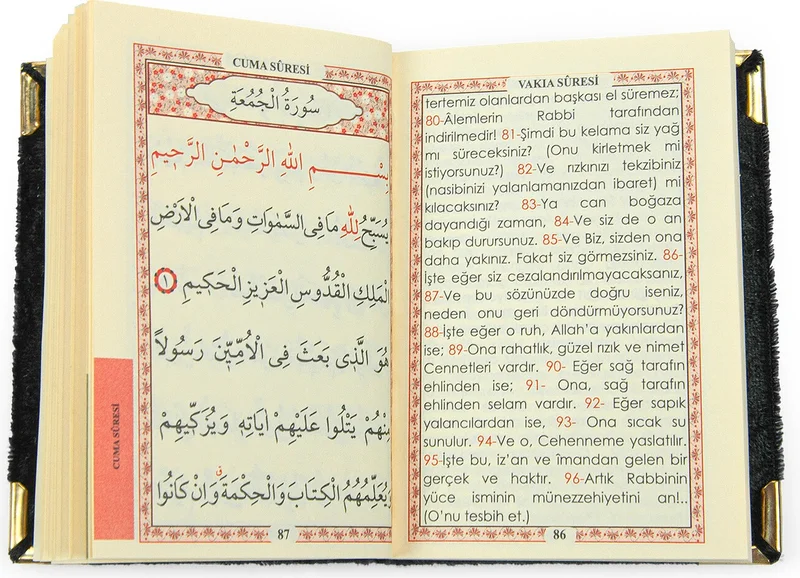 CUMA SÛRESİ
سُورَةُ الْجُمُعَةِ
بِسْــــــمِ اللهِ الرَّحْمٰنِ الرَّحٖيمِ
يُسَبِّحُ لِلّٰهِ مَا فِى السَّمٰوَاتِ وَمَا فِى الْاَرْضِ
الْمَلِكِ الْقُدُّوسِ الْعَزٖيزِ الْحَكٖيمِ ١
هُوَ الَّذٖى بَعَثَ فِى الْاُمِّيّٖنَ رَسُولاً
مِنْهُمْ يَتْلُوا عَلَيْهِمْ اٰيَاتِهٖ وَيُزَكّٖيهِمْ
وَيُعَلِّمُهُمُ الْكِتَابَ وَالْحِكْمَةَ ۗ وَاِنْ كَانُوا
87
CUMA SÛRESİ
VAKIA SÛRESİ
tertemiz olanlardan başkası el süremez;
80-Âlemlerin Rabbi tarafından
indirilmedir! 81-Şimdi bu kelama siz yağ
mı süreceksiniz? (Onu kirletmek mi
istiyorsunuz?) 82-Ve rızkınızı tekzibiniz
(nasibinizi yalanlamanızdan ibaret) mi
kılacaksınız? 83-Ya can boğaza
dayandığı zaman, 84-Ve siz de o an
bakıp durursunuz. 85-Ve Biz, sizden ona
daha yakınız. Fakat siz görmezsiniz. 86-
İşte eğer siz cezalandırılmayacaksanız,
87-Ve bu sözünüzde doğru iseniz,
neden onu geri döndürmüyorsunuz?
88-İşte eğer o ruh, Allah’a yakınlardan
ise; 89-Ona rahatlık, güzel rızık ve nimet
Cennetleri vardır. 90- Eğer sağ tarafın
ehlinden ise; 91- Ona, sağ tarafın
ehlinden selam vardır. 92- Eğer sapık
yalancılardan ise, 93- Ona sıcak su
sunulur. 94-Ve o, Cehenneme yaslatılır.
95-İşte bu, iz’an ve îmandan gelen bir
gerçek ve haktır. 96-Artık Rabbinin
yüce isminin münezzehiyetini an!..
(O’nu tesbih et.)
86